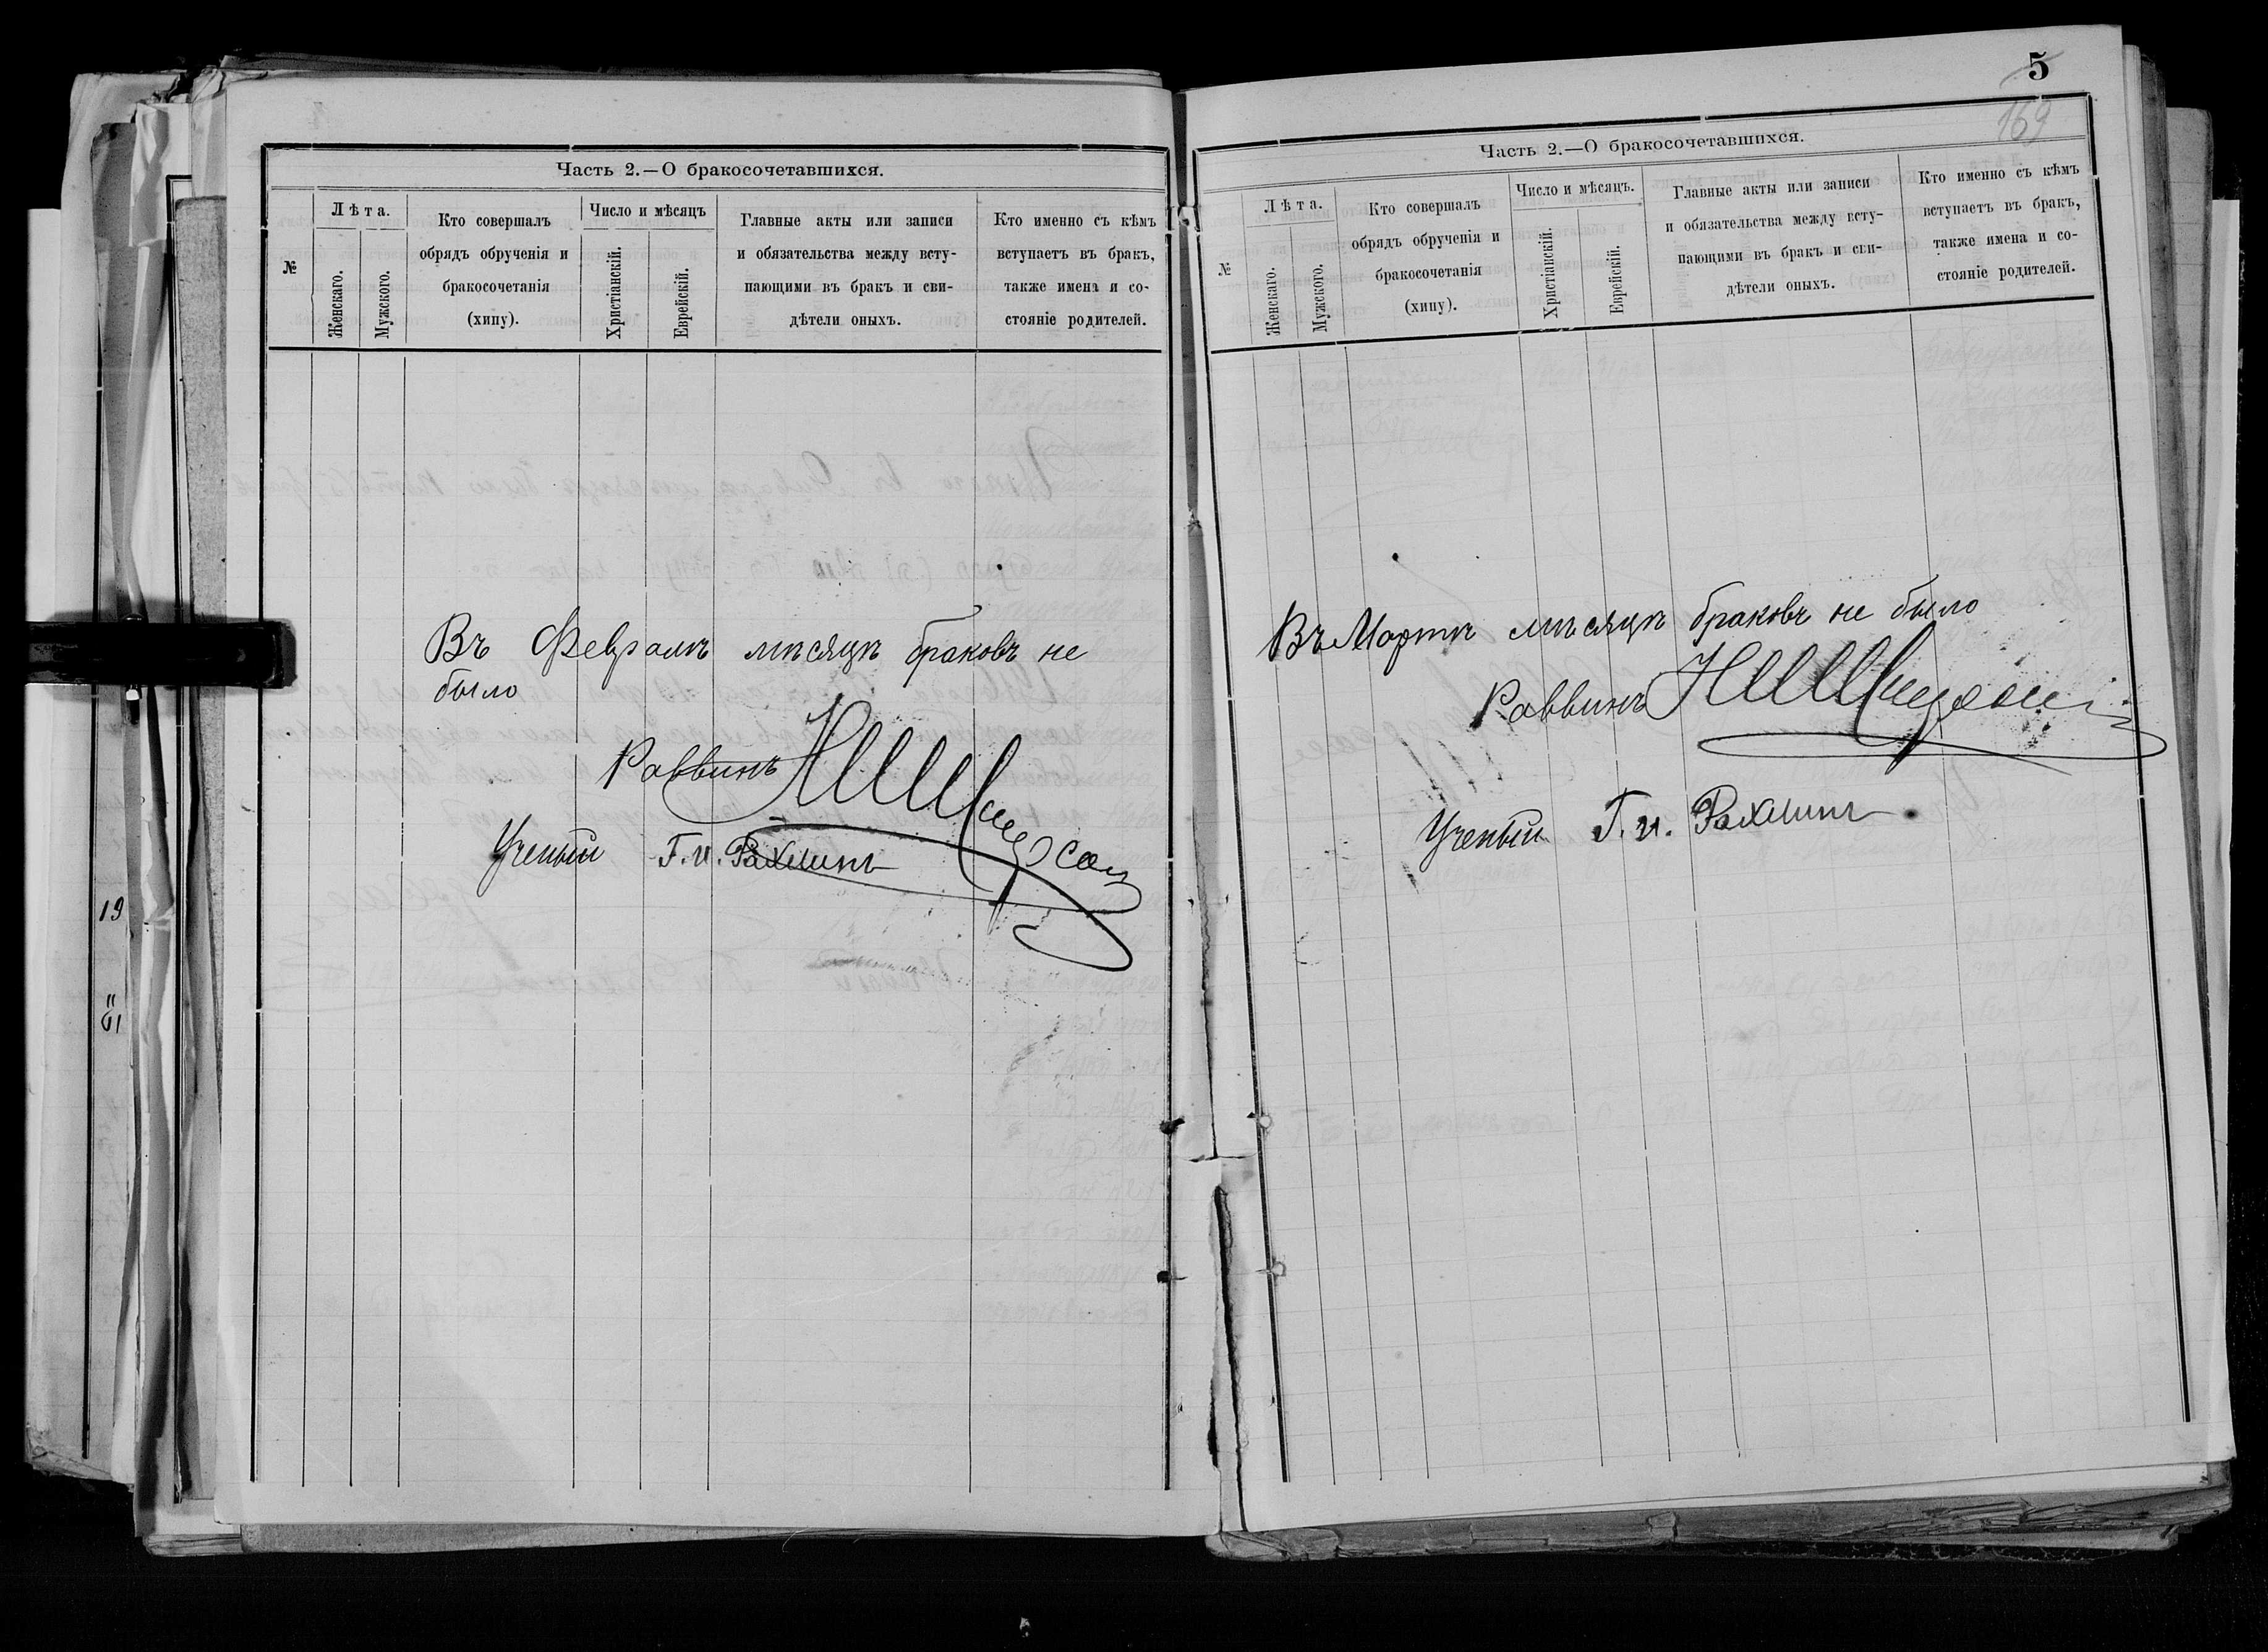 Часть 2.—О бракосочетавшихся.
№
Лѣта.
Женскаго.
Мужского.
Кто совершалъ
обрядъ обрученія и
бракосочетанія
(хипу).
Число и мѣсяцъ
Христіанскій.
Еврейскій.
Главные акты или записи
и обязательства между всту-
пающими въ бракъ и сви-
дѣтели оныхъ.
Кто именно съ кѣмъ
вступаетъ въ бракъ,
также имена и со-
стояніе родителей.
Въ Февралѣ мѣсяцѣ браковъ не
было
Раввинъ
Ученый Г. И. Рахлинъ
19
5
169
Часть 2.—О бракосочетавшихся.
№
Лѣта.
Женскаго.
Мужского.
Кто совершалъ
обрядъ обрученія и
бракосочетанія
(хипу).
Число и мѣсяцъ.
Христіанскій.
Еврейскій.
Главные акты или записи
и обязательства между всту-
пающими въ бракъ и сви-
дѣтели оныхъ.
Кто именно съ кѣмъ
вступаетъ въ бракъ,
также имена и со-
стояніе родителей.
Въ Мартѣ мѣсяцѣ браковъ не было
Раввинъ
Ученый Г. И. Рахлинъ